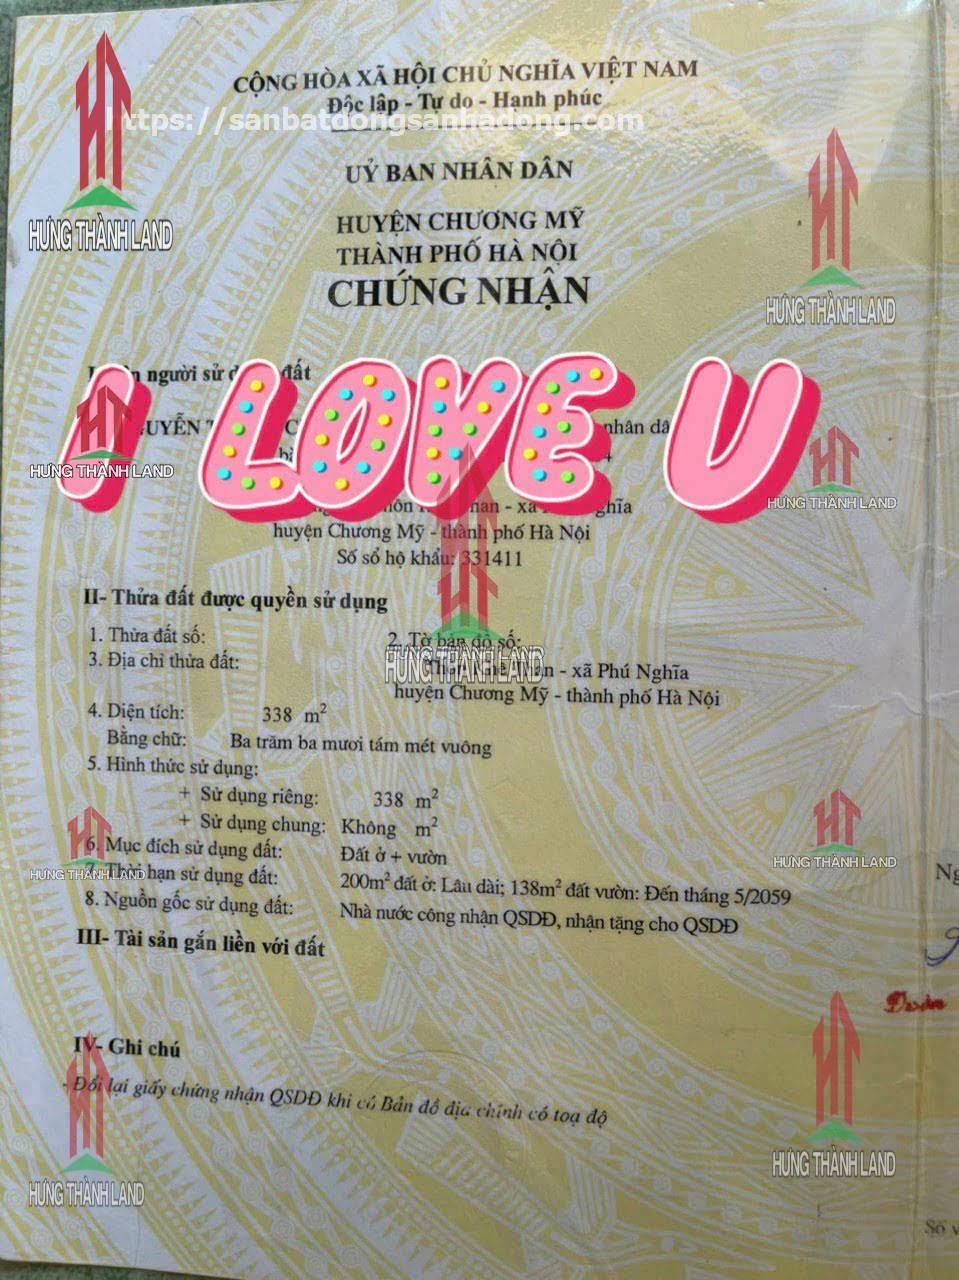 CỘNG HÒA XÃ HỘI CHỦ NGHĨA VIỆT NAM
Độc lập - Tự do - Hạnh phúc
https://sanbatdongsanhadong.com
UỶ BAN NHÂN DÂN
HƯNG THÀNH LAND
HUYỆN CHƯƠNG MỸ
THÀNH PHỐ HÀ NỘI
CHỨNG NHẬN
HƯNG THÀNH LAND
người sử đất
I LOVE U
nhân
HƯNG THÀNH LAND
HƯNG THÀNH LAND
huyện Chương Mỹ - thành phố Hà Nội
Số sổ hộ khẩu: 331411
II- Thửa đất được quyền sử dụng
1. Thửa đất số: 2. Tờ bản đồ số:
HƯNG THÀNH LAND
3. Địa chỉ thửa đất: - xã Phú Nghĩa
huyện Chương Mỹ - thành phố Hà Nội
4. Diện tích: 338 m²
Bằng chữ: Ba trăm ba mươi tám mét vuông
5. Hình thức sử dụng:
+ Sử dụng riêng: 338 m²
+ Sử dụng chung: Không m²
6. Mục đích sử dụng đất: Đất ở + vườn
HƯNG THÀNH LAND
HƯNG THÀNH LAND
7. Thời hạn sử dụng đất: 200m² đất ở: Lâu dài; 138m² đất vườn: Đến tháng 5/2059
8. Nguồn gốc sử dụng đất: Nhà nước công nhận QSDĐ, nhận tặng cho QSDĐ
III- Tài sản gắn liền với đất
IV- Ghi chú
- Đổi lại giấy chứng nhận QSDĐ khi có Bản đồ địa chính có toạ độ
HƯNG THÀNH LAND
HƯNG THÀNH LAND
Số